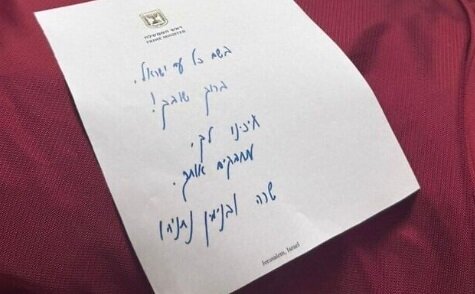 ראש הממשלה
PRIME MINISTER
בשם כל עם ישראל.
ברוך שובך!
חיכינו לך,
מחבקים אותך.
שרה ובנימין נתניהו
Jerusalem, Israel